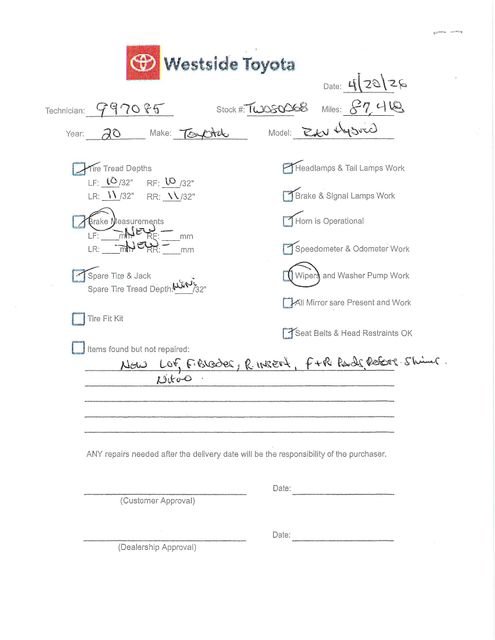 Westside Toyota
Date: 4/20/26
Technician: 997085 Stock#: TW050068 Miles: 87,418
Year: 20 Make: Toyota Model: Rav Hybrid
Tire Tread Depths
LF: 10/32" RF: 10/32"
LR: 11/32" RR: 11/32"
Brake Measurements
LF: mm - New - RF: mm
LR: mm - New - RR: mm
Spare Tire & Jack
Spare Tire Tread Depth Mini/32"
Tire Fit Kit
Headlamps & Tail Lamps Work
Brake & Signal Lamps Work
Horn is Operational
Speedometer & Odometer Work
Wipers and Washer Pump Work
All Mirror sare Present and Work
Seat Belts & Head Restraints OK
Items found but not repaired:
New LOF, F. Blades, R insert, F+R Pads,
ANY repairs needed after the delivery date will be the responsibility of the purchaser.
Date:
(Customer Approval)
Date:
(Dealership Approval)